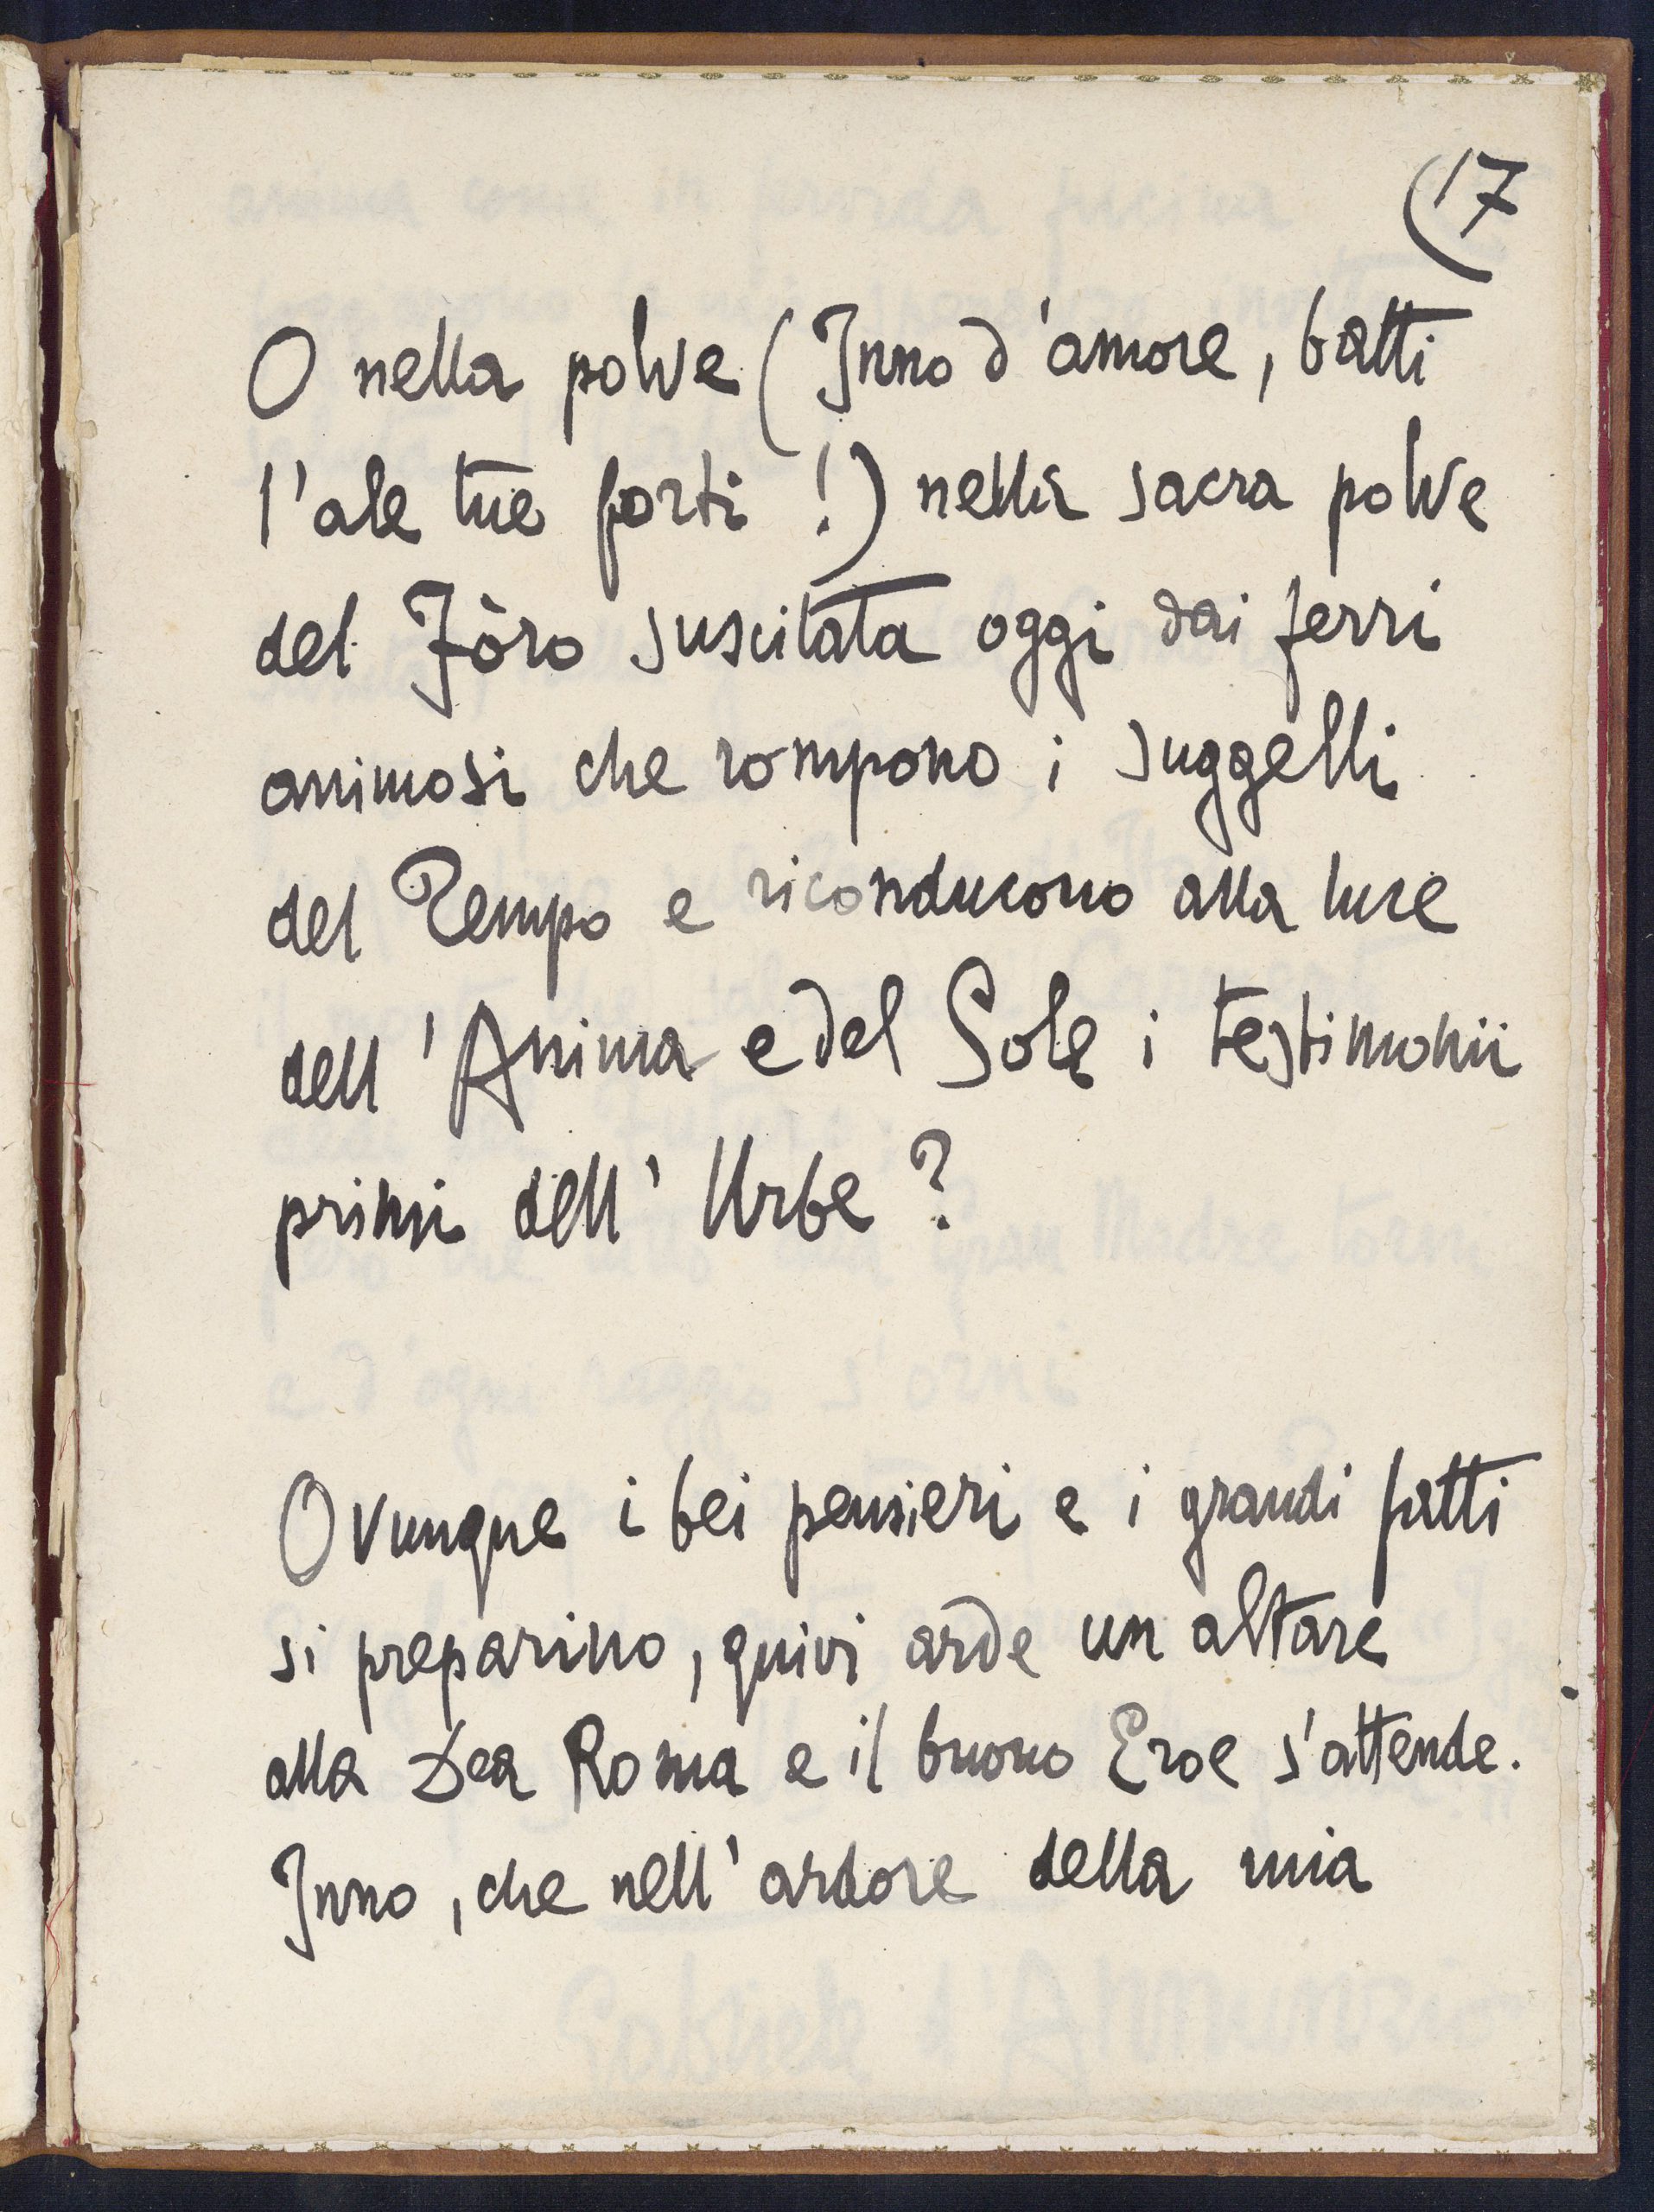 (17
O nella polve (Inno d'amore, batti
l'ale tue forti!) nella sacra polve
del Fòro suscitata oggi dai ferri
animosi che rompono i suggelli
del Tempo e riconducono alla luce
dell'Anima e del Sole i testimonii
primi dell'Urbe?
Ovunque i bei pensieri e i grandi fatti
si preparino, quivi arde un altare
alla Dea Roma e il buono Eroe s'attende.
Inno, che nell'ardore della mia